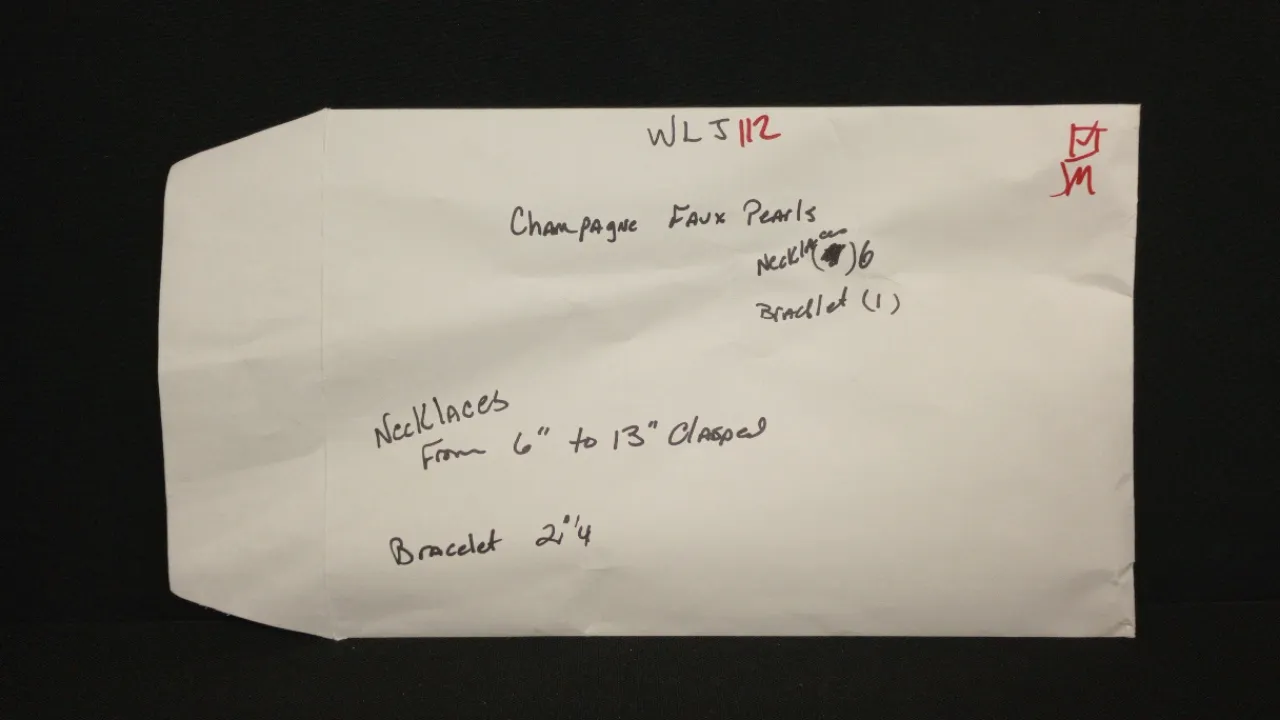 WLJ112
JM
Champagne Faux Pearls
Necklaces ( ) 6
Braclet (1)
Necklaces
From 6" to 13" Clasped
Bracelet 2"1/4